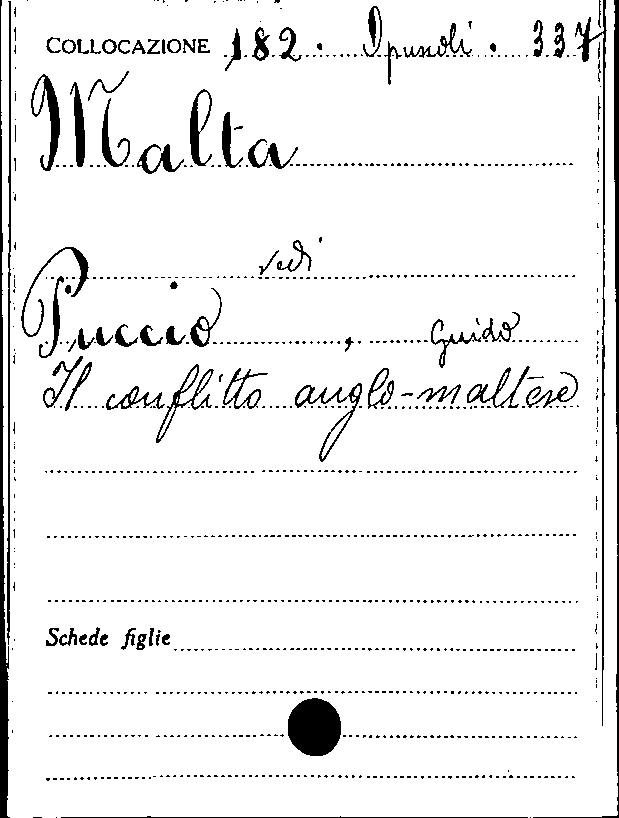 COLLOCAZIONE 182. Opuscoli. 337
Malta
vedi
Puccio, Guido
Il conflitto anglo-maltese
Schede figlie